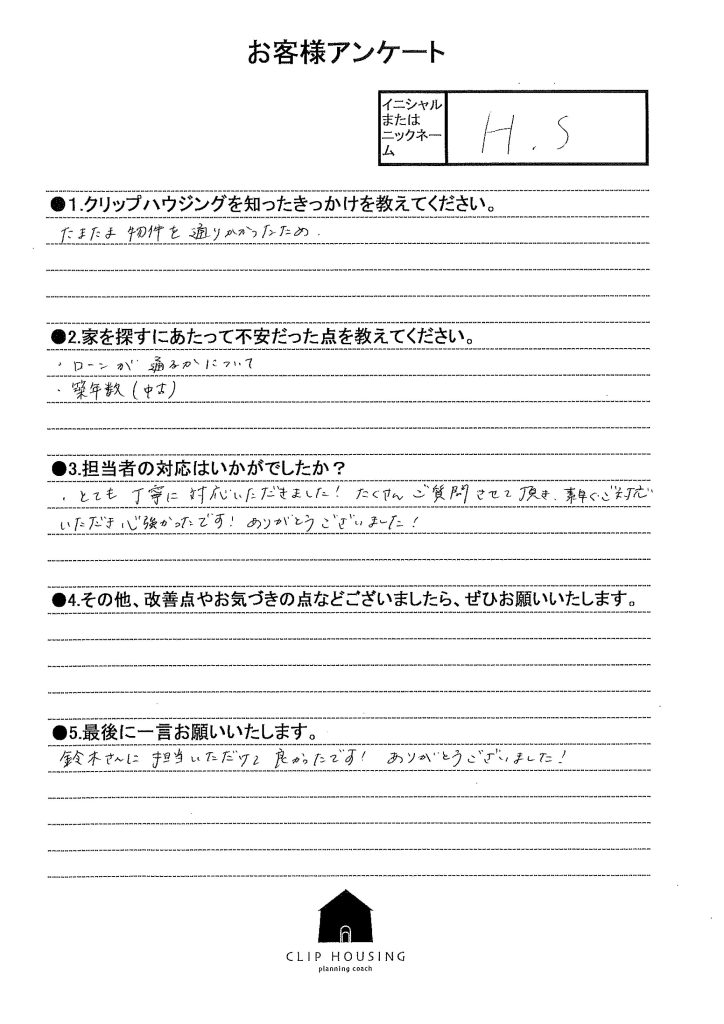 お客様アンケート
イニシャル
または
ニックネー
ム
H.S
●1.クリップハウジングを知ったきっかけを教えてください。
たまたま物件を通りかかったため.
●2.家を探すにあたって不安だった点を教えてください。
・ローンが通るかについて
・築年数(中古)
●3.担当者の対応はいかがでしたか？
・とても丁寧に対応いただきました! たくさんご質問させて頂き、素早くご対応
いただき心強かったです! ありがとうございました!
●4.その他、改善点やお気づきの点などございましたら、ぜひお願いいたします。
●5.最後に一言お願いいたします。
鈴木さんに担当いただけて良かったです! ありがとうございました!
CLIP HOUSING
planning coach